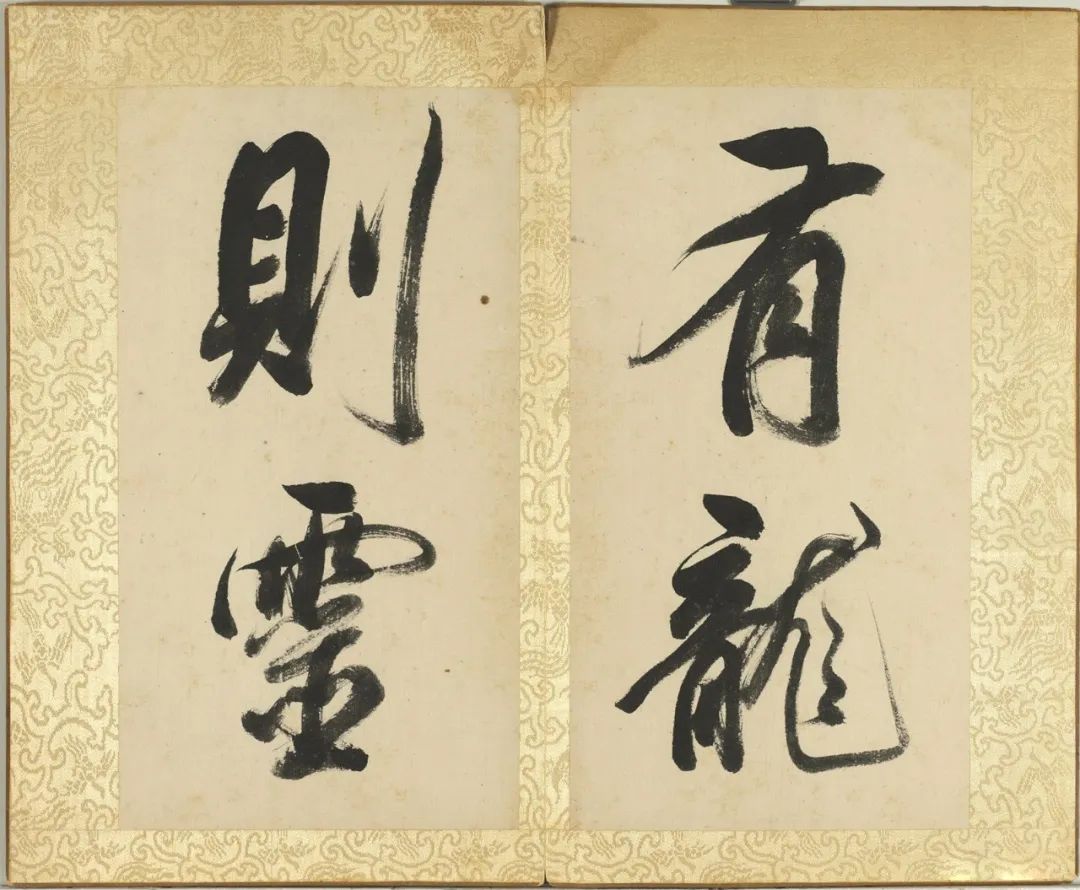 有龍
則靈